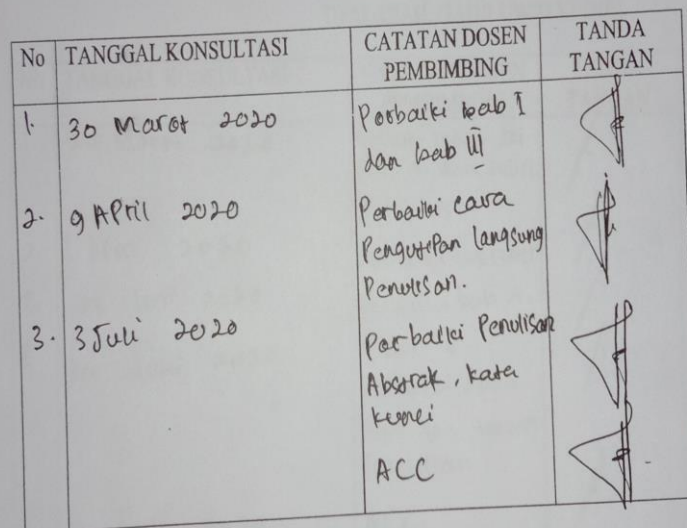 No TANGGAL KONSULTASI CATATAN DOSEN PEMBIMBING TANDA TANGAN
1. 30 Maret 2020 Perbaiki bab I
dan bab III
2. 9 April 2020 Perbaiki cara
Pengutipan langsung
Penulisan.
3. 3 Juli 2020 Perbaiki Penulisan
Abstrak, kata
kunci
ACC